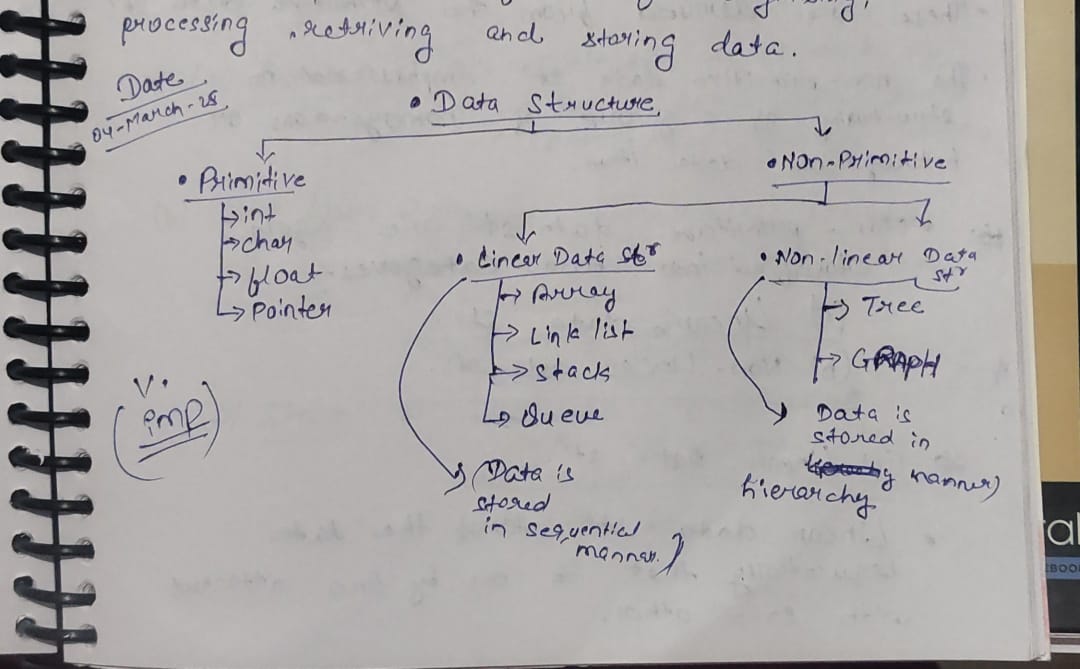 processing, retriving and storing data.
Date
04-March-25
• Data Structure
• Primitive
→ int
→ char
→ float
→ Pointer
• Non-Primitive
• Linear Data str
→ Array
→ Link list
→ Stack
→ Queue
(Data is
stored
in sequential
manner.)
• Non-linear Data
str
→ Tree
→ GRAPH
Data is
stored in
hierarchy manner)
(V.
imp)
al